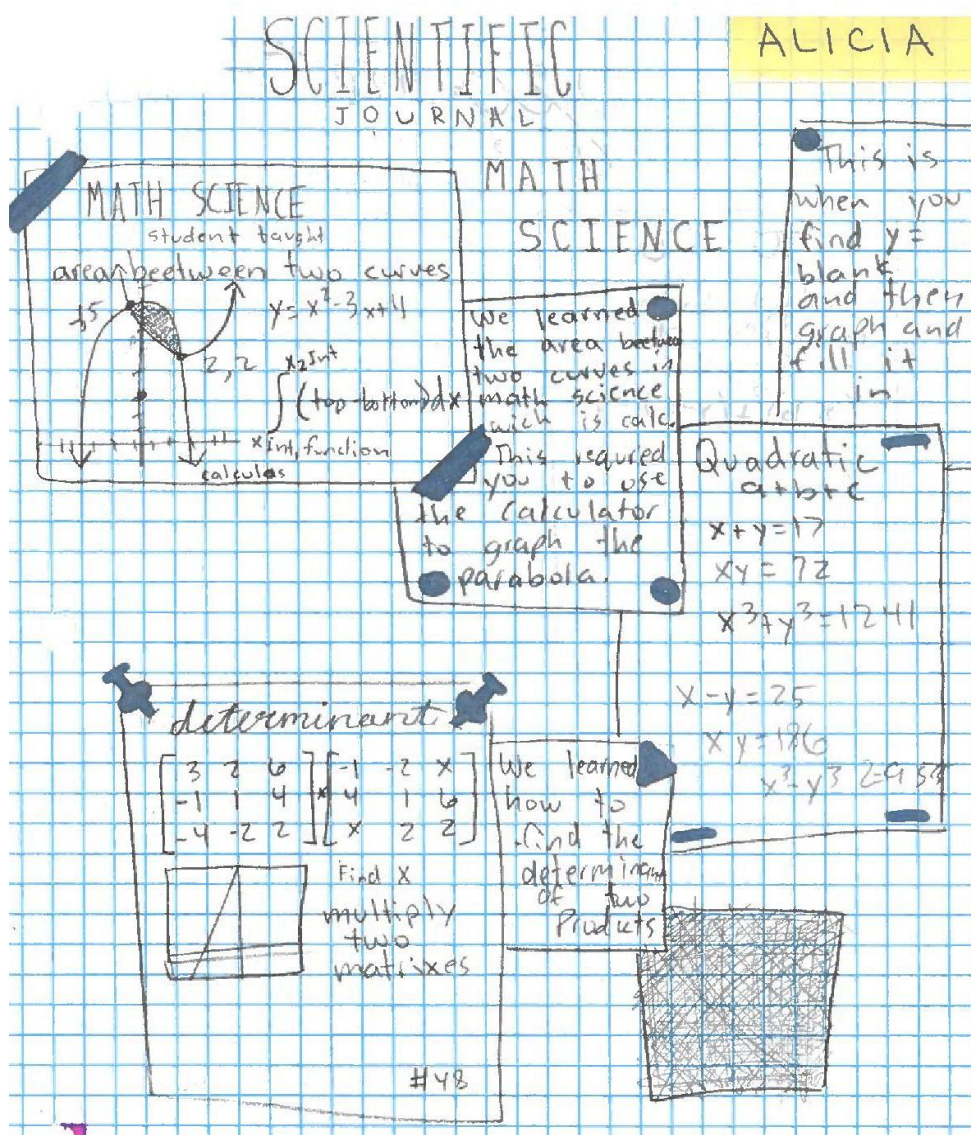 SCIENTIFIC
JOURNAL
ALICIA
MATH
SCIENCE
MATH SCIENCE
student taught
area beetween two curves
y=x²-3x+4
2,2
x2Int
(top-bottom)dx
xInt, function
calculas
We learned
the area
two curves in
math science
wich is calc.
This requred
you to use
the calculator
to graph the
parabola.
This is
when you
find y=
blank
and then
graph and
fill it
in
Quadratic
a+b+c
x+y=17
xy=72
x³+y³=1241
x-y=25
xy=186
x³-y³
determinant
3 2 6
-1 1 4
-4 -2 2
x
-1 -2 x
4 1 6
x 2 2
Find x
multiply
two
matrixes
#48
We learned
how to
find the
determinant
of two
Products